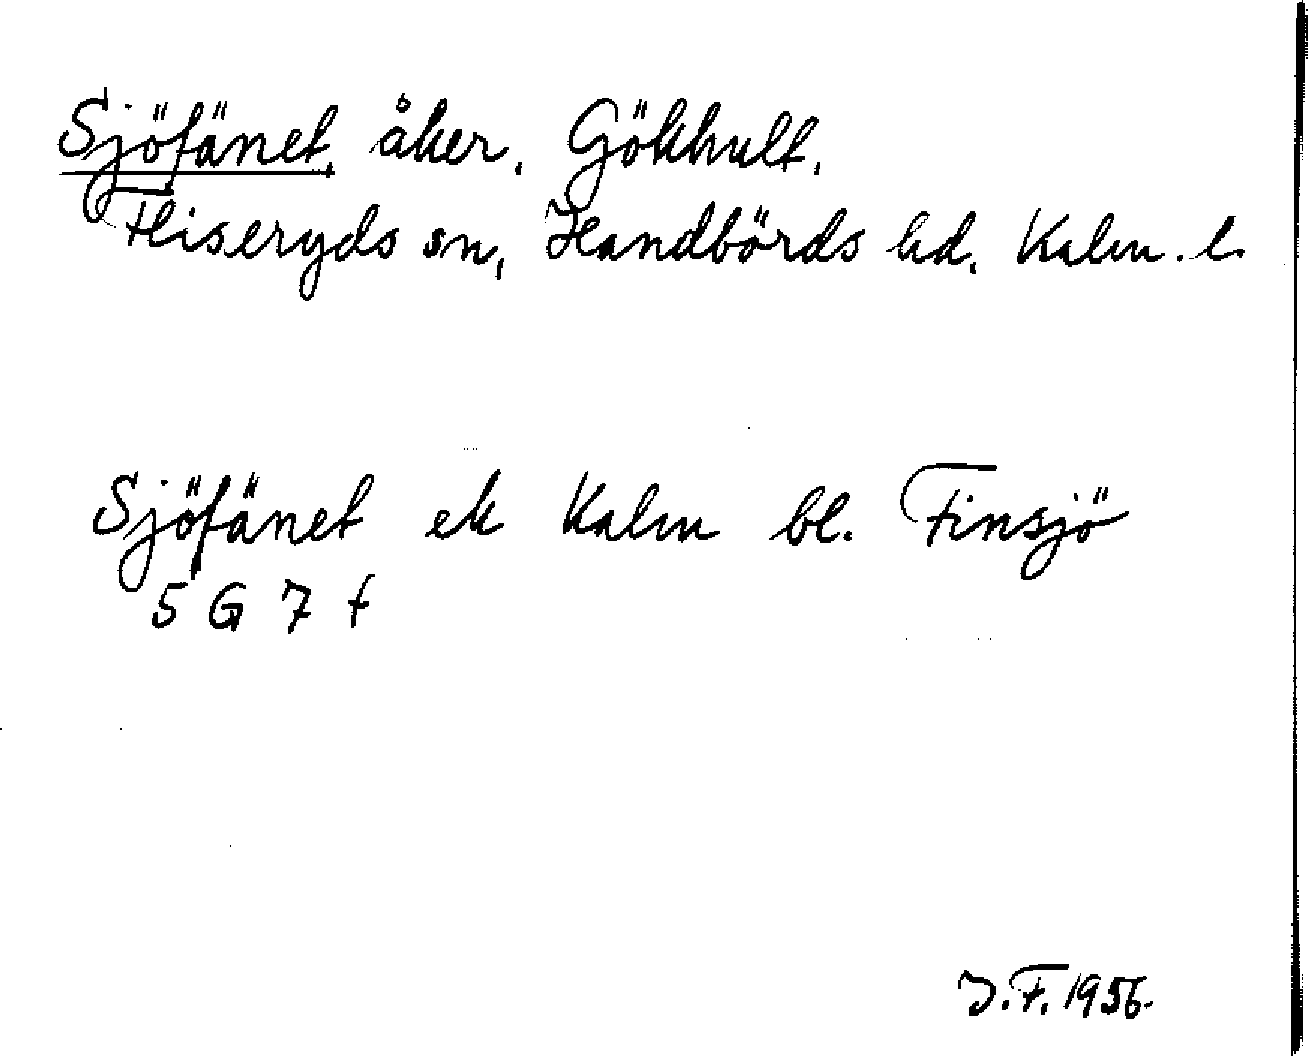 Sjöfänet, åker, Gökhult,
Fliseryds sn, Handbörds hd, Kalm. l.
Sjöfänet ek Kalm bl. Finsjö
5 G 7 f
J.F. 1956.